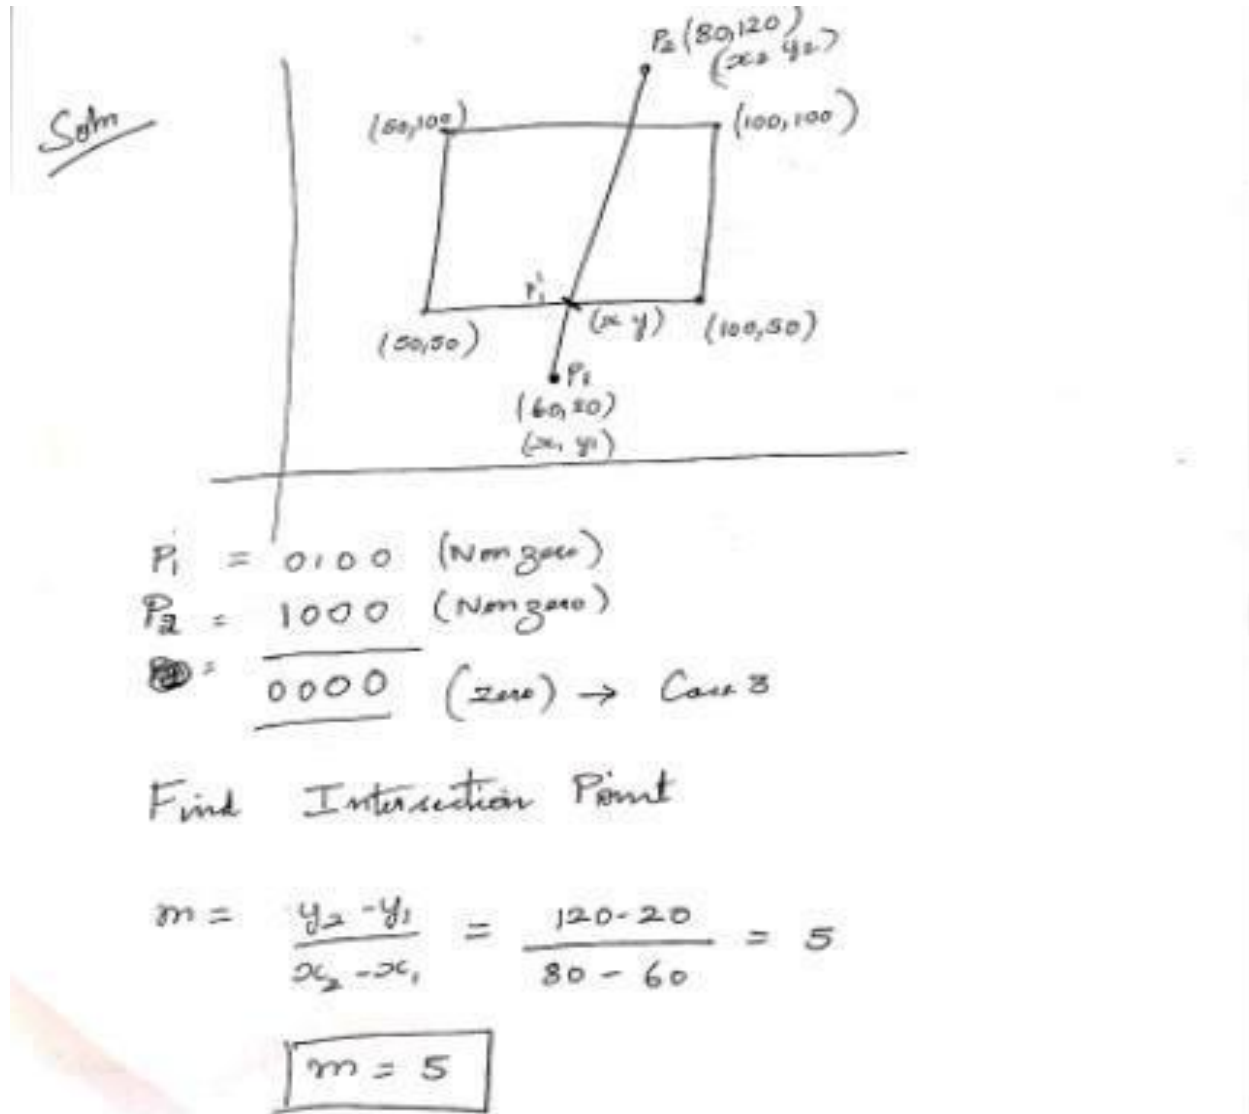 Soln
P2 (80,120)
(x2 y2)
(50,100)
(100,100)
P1'
(x y)
(50,50)
(100,50)
P1
(60,20)
(x1 y1)
P1 = 0100 (Non zero)
P2 = 1000 (Non zero)
= 0000 (zero) → Case 3
Find Intersection Point
m = y2 - y1 / x2 - x1 = 120 - 20 / 80 - 60 = 5
m = 5